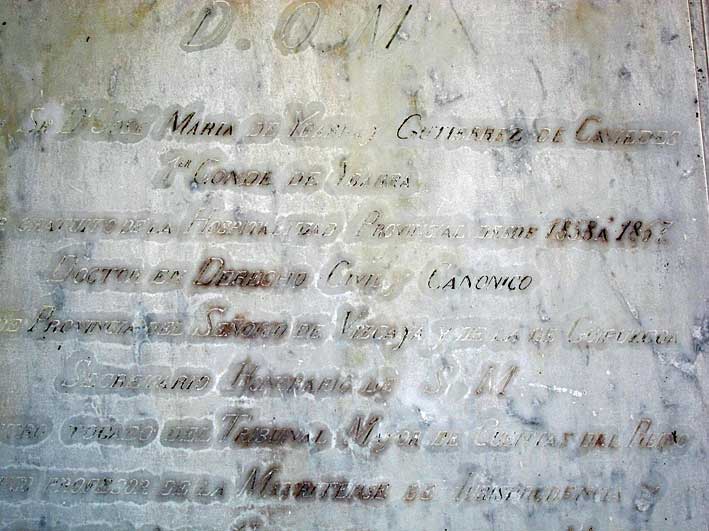 D. O. M
Sr Dn Jose Maria de Ybarra y Gutierrez de Caviedes
1er Conde de Ybarra
gratuito de la Hospitalidad Provincial desde 1838 á
Doctor en Derecho Civil y Canonico
Provincia del Señorio de Vizcaya y de la de Gipuzcoa
Secretario Honorario de S. M
togado del Tribunal Mayor de Cuentas del Reino
profesor de la Matritense de Jurispudencia y